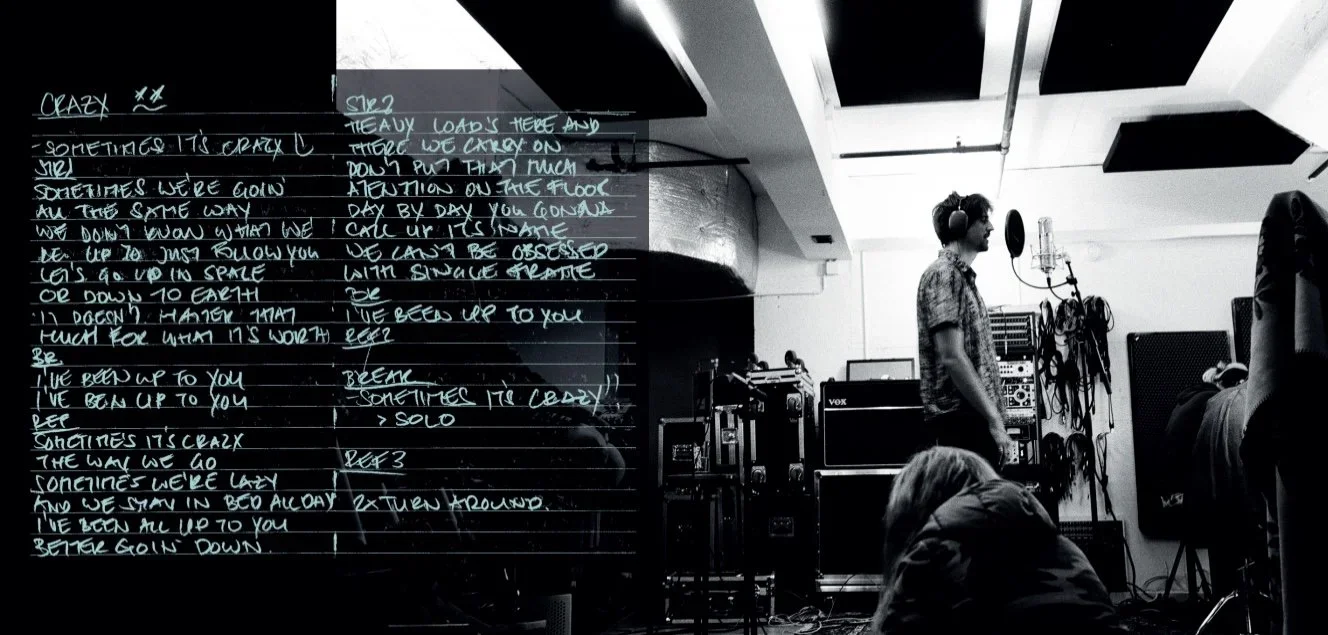 CRAZY
- SOMETIMES IT'S CRAZY
STR1
SOMETIMES WE'RE GOIN'
ALL THE SAME WAY
WE DON'T KNOW WHAT WE
UP TO JUST FOLLOW YOU
LET'S GO UP IN SPACE
OR DOWN TO EARTH
IT DOESN'T MATTER THAT
MUCH FOR WHAT IT'S WORTH
BR.
I'VE BEEN UP TO YOU
I'VE BEN UP TO YOU
REF
SOMETIME'S IT'S CRAZY
THE WAY WE GO
SOMETIME'S WE'RE LAZY
AND WE STAY IN BED ALL DAY
I'VE BEEN ALL UP TO YOU
BETTER GOIN' DOWN.
STR2
HEAVY LOAD'S HERE AND
THERE WE CARRY ON
DON'T PUT THAT MUCH
ATENTION ON THE FLOOR
DAY BY DAY YOU GONNA
CALL UP IT'S NAME
WE CAN'T BE OBSESSED
WITH SINGLE FRAME
BR
I'VE BEEN UP TO YOU
REF2
BREAK
-SOMETIMES IT'S CRAZY"
> SOLO
REF 3
2x TURN AROUND.
VOX